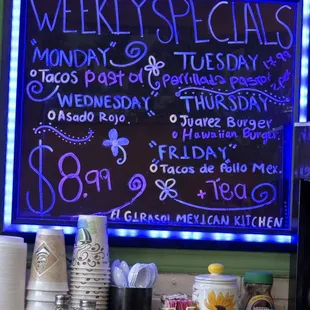 WEEKLY SPECIALS
"MONDAY"
Tacos pastor
TUESDAY
Parrillada
"WEDNESDAY"
Asado Rojo
THURSDAY
Juarez Burger
Hawaiian Burger
"FRIDAY"
Tacos de Pollo Mex.
$8.99
+Tea
EL GIRASOL MEXICAN KITCHEN